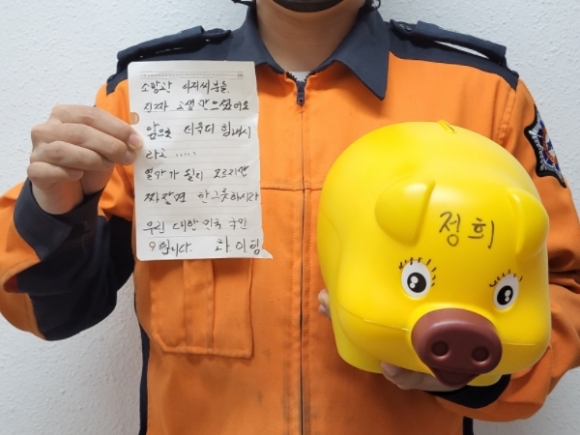 소방관 아저씨분들
진짜 고생 많으셨어요
앞으로 더욱더 힘내시
라고.....
얼마가 될지 모르지만
짜장면 한그릇하시라
우린 대한민국 국민
입니다. 화이팅
정희